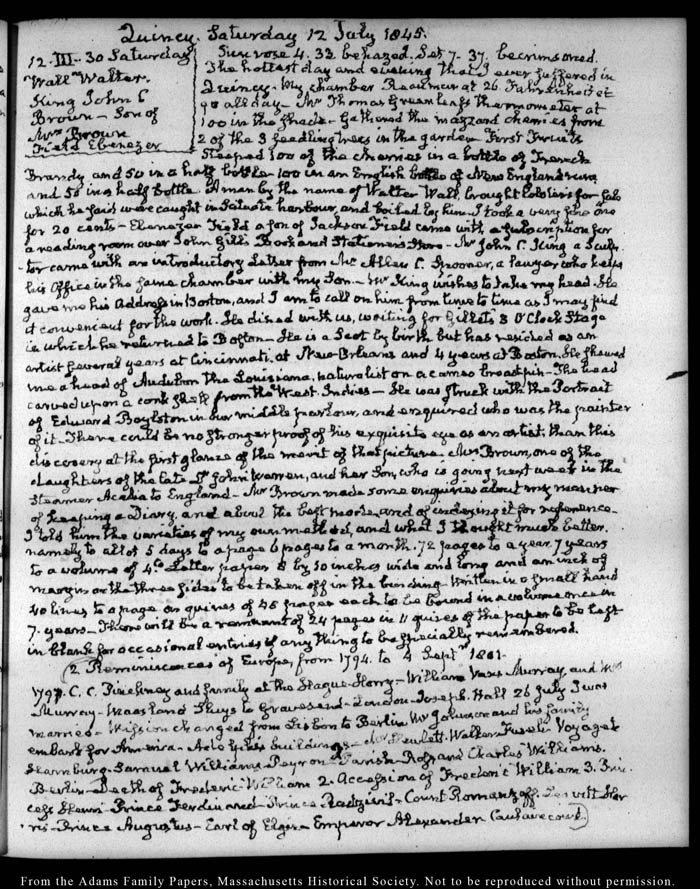 Quincy. Saturday 12 July 1845.
12. III. 30 Saturday
Wall Walter.
King John C
Brown – Son of
Mrs Brown
Field Ebenezer
Sun rose 4. 33 behazed. Set 7. 37. becrimsoned.
The hottest day and evening that I ever suffered in
Quincy – My chamber Reaumur at 26. Fahrenheit at
90 all day – Mr Thomas Greenleafs thermometer at
100 in the shade – Gathered the mazzard cherries from
2 of the 3 seedling trees in the garden First Fruits
Steeped 100 of the cherries in a bottle of French
Brandy and 50 in a half bottle – 100 in an English bottle of New England rum
and 50 in a half bottle. A man by the name of Walter Wall, brought lobsters for sale
which he said were caught in Scituate harbour, and boiled by him. I took a very fine one
for 20 cents – Ebenezer Field a son of Jackson Field came with a subscription for
a reading room over John Gill's Book and Stationers Store – Mr John C. King a Sculp-
tor came with an introductory Letter from Mr Allen C. Spooner, a lawyer who keeps
his Office in the same chamber with my Son – Mr King wishes to take my head. He
gave me his Address in Boston, and I am to call on him from time to time as I may find
it convenient for the work. He dined with us, waiting for Gillet's 8 O'Clock Stage
in which he returned to Boston – He is a Scot by birth but has resided as an
artist several years at Cincinnati, at New Orleans and 4 years at Boston. He shewed
me a head of Audubon the Louisiana, naturalist on a cameo breastpin – The head
carved upon a conk shell from the West Indies – He was struck with the Portrait
of Edward Boylston in our middle parlour, and enquired who was the painter
of it. There could be no stronger proof of his exquisite eye as an artist, than this
discovery at the first glance of the merit of that picture. Mrs Brown, one of the
daughters of the late Dr John Warren, and her Son, who is going next week in the
Steamer Acadia to England – Mr Brown made some enquiries about my manner
of keeping a Diary, and about the best mode and of indexing it for reference –
I told him the varieties of my own method, and what I thought much better.
namely to allot 5 days to a page 6 pages to a month. 72 pages to a year 7 years
to a volume of 4to Letter paper 8 by 10 inches wide and long and an inch of
margin on the three sides to be taken off in the binding Written in a small hand
40 lines to a page on quires of 48 pages each to be bound in a volume once in
7. years – There will be a remnant of 24 pages in 11 quires of the paper to be left
in blank for occasional entries of any thing to be specially remembered.
(2 Reminiscences of Europe, from 1794. to 4 Septr 1801.
1797. C. C. Pinckney and family at the Hague – Horry – William Vans Murray, and Mrs
Murray – Maasland Sluys to Gravesend – London – Joseph Hall 26 July I was
married – Mission changed from Lisbon to Berlin Mr Johnson and his family
embark for America – buildings – Mr Hewlett – Walker – Fuseli Voyage to
Hamburg – Samuel Williams – Parish – Ross and Charles Williams.
Berlin – Death of Frederic William 2. Accession of Frederic William 3. Prin
cess Henri – Prince Ferdinand – Prince Radzivil – Count Romanzoff. Har
ris – Prince Augustus – Earl of Elgin – Emperor Alexander Caulaincourt)
From the Adams Family Papers, Massachusetts Historical Society. Not to be reproduced without permission.